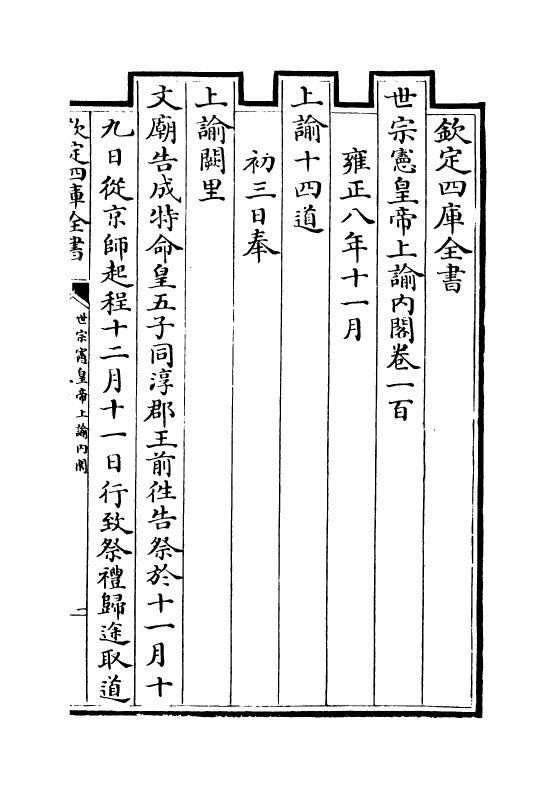 欽定四庫全書
世宗憲皇帝上諭内閣卷一百
雍正八年十一月
上諭十四道
初三日奉
上諭闕里
文廟告成特命皇五子同淳郡王前徃告祭於十一月十
九日從京師起程十二月十一日行致祭禮歸途取道
欽定四庫全書
世宗憲皇帝上諭内閣
一